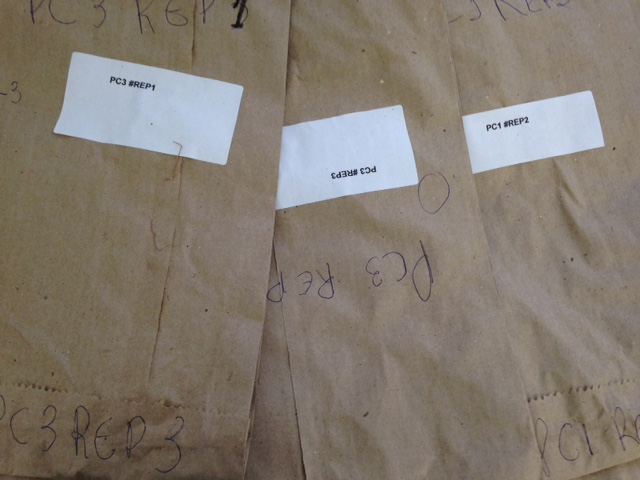 PC3 REP 1
PC3 #REP1
PC1 #REP2
PC3 #REP3
PC3 REP
PC3 REP 3
PC1